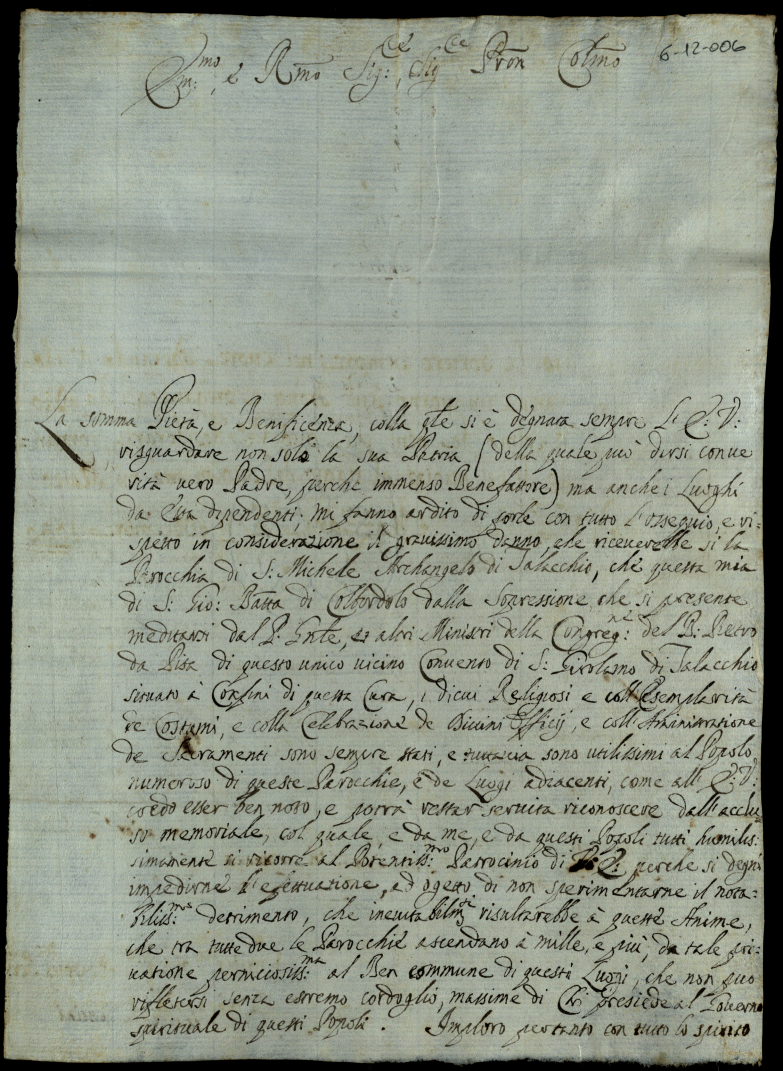 Em:mo, e Rmo Sig:, Sig Pron Colmo 6-12-006
La somma Pietà, e Benificenza, colla qle si è degnata sempre L' E: V:
risguardare non solo la sua Patria (della quale può dirsi con ve
rità vero Padre, perche immenso Benefattore) ma anche i Luoghi
da essa dipendenti; mi fanno ardito di porle con tutto l'ossequio, e ri=
spetto in considerazione il gravissimo danno, che riceverebbe sì la
Parocchia di S: Michele Archangelo di Talacchio, che questa mia
di S: Gio: Batta di Colbordolo dalla Sopressione, che si presente
meditarsi dal P: Gnle, et altri Ministri della Congreg:ne del B: Pietro
da Pisa di questo unico vicino Convento di S: Girolamo di Talacchio
situato à Confini di questa Cura, i di cui Religiosi e coll'Esemplarità
de Costumi, e colla Celebrazione de Divini Officij, e coll'Aministratione
de Sacramenti sono sempre stati, e tuttavia sono utilissimi al Popolo
numeroso di queste Parocchie, e de Luogi adiacenti, come all' E: V:
credo esser ben noto, e potrà restar servita riconoscere dall'acclu
so memoriale, col quale, e da me, e da questi Popoli tutti humilis:
simamente si ricorre al Potentiss:mo Patrocinio di perche si degni
impedirne l'effettuatione, ad ogetto di non sperimentarne il nota=
biliss:mo detrimento, che inevitabilmte risultarebbe à queste Anime,
che tra tutte due le Parocchie ascendano à mille, e più, da tale pri=
vatione perniciosiss:ma al Ben commune di questi Luoghi, che non può
riflettersi senza estremo cordoglio, massime di Chi presiede al Governo
spirituale di questi Popoli. Imploro pertanto con tutto lo spirito